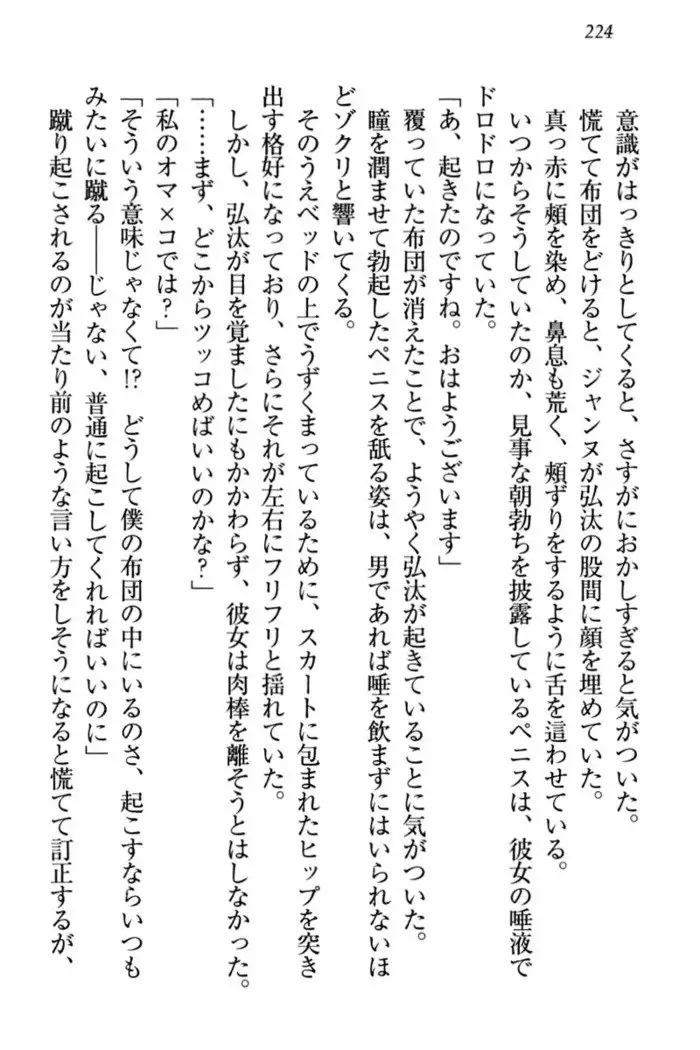 224
意識がはっきりとしてくると、さすがにおかしすぎると気がついた。
慌てて布団をどけると、ジャンヌが弘汰の股間に顔を埋めていた。
真っ赤に頬を染め、鼻息も荒く、頬ずりをするように舌を這わせている。
いつからそうしていたのか、見事な朝勃ちを披露しているペニスは、彼女の唾液で
ドロドロになっていた。
「あ、起きたのですね。おはようございます」
覆っていた布団が消えたことで、ようやく弘汰が起きていることに気がついた。
瞳を潤ませて勃起したペニスを舐る姿は、男であれば唾を飲まずにはいられないほ
どゾクリと響いてくる。
そのうえベッドの上でうずくまっているために、スカートに包まれたヒップを突き
出す格好になっており、さらにそれが左右にフリフリと揺れていた。
しかし、弘汰が目を覚ましたにもかかわらず、彼女は肉棒を離そうとはしなかった。
「……まず、どこからツッコめばいいのかな?」
「私のオマ×コでは?」
「そういう意味じゃなくて!?　どうして僕の布団の中にいるのさ、起こすならいつも
みたいに蹴る――じゃない、普通に起こしてくれればいいのに」
蹴り起こされるのが当たり前のような言い方をしそうになると慌てて訂正するが、